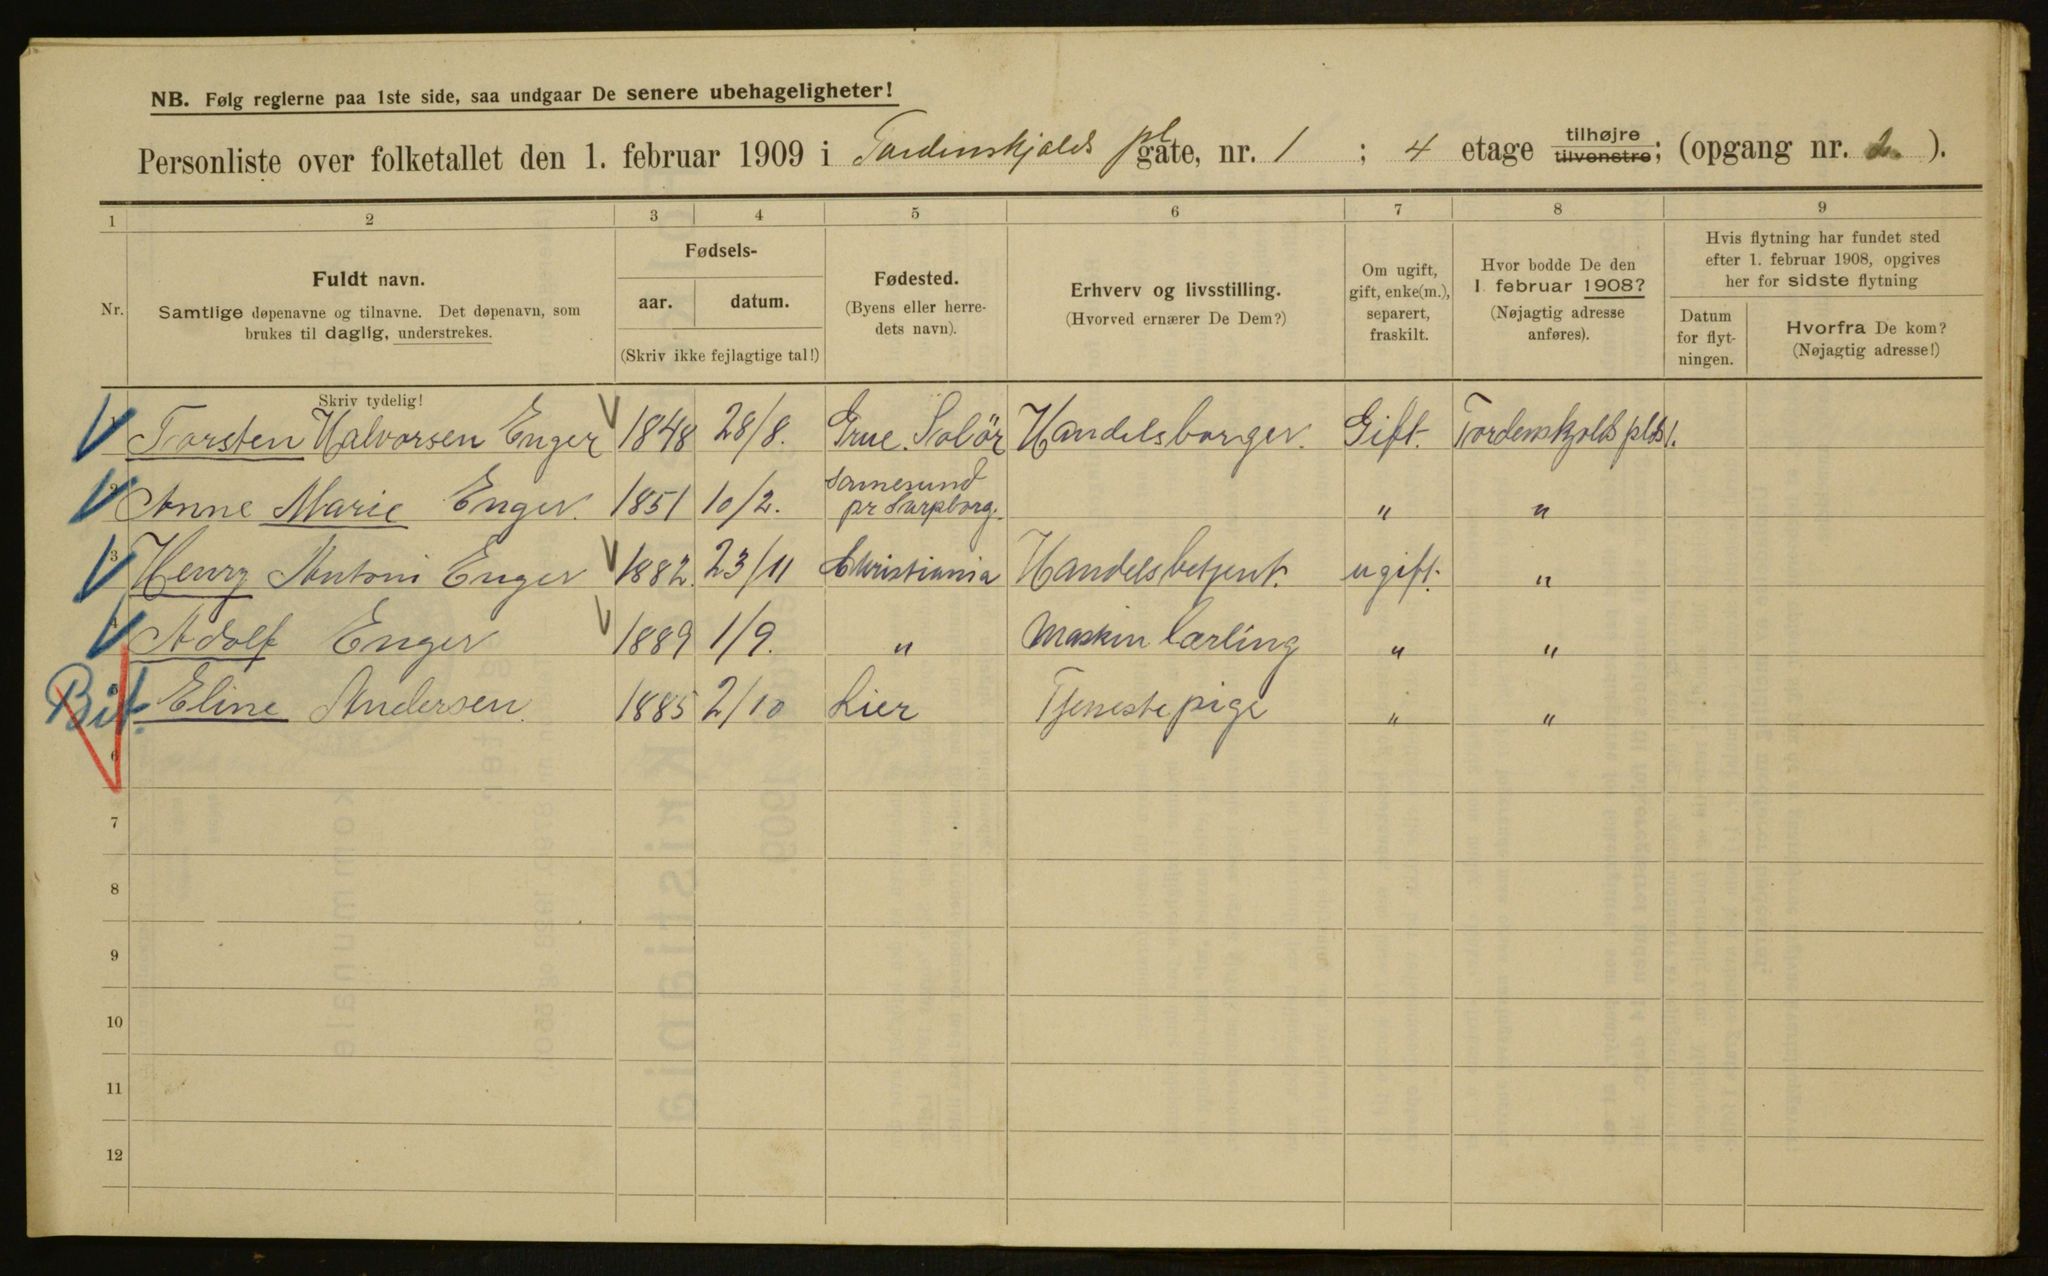 NB. Følg reglerne paa 1ste side, saa undgaar De senere ubehageligheter!
Personliste over folketallet den 1. februar 1909 i Tordenskjolds pl gate, nr. 1 ; 4 etage tilhøjre tilvenstre; (opgang nr. 2 ).
1 2 3 4 5 6 7 8 9
Nr.
Fuldt navn.
Samtlige døpenavne og tilnavne. Det døpenavn, som
brukes til daglig, understrekes.
Fødsels-
aar. datum.
(Skriv ikke fejlagtige tal!)
Fødested.
(Byens eller herre-
dets navn).
Erhverv og livsstilling.
(Hvorved ernærer De Dem?)
Om ugift,
gift, enke(m.),
separert,
fraskilt.
Hvor bodde De den
1. februar 1908?
(Nøjagtig adresse
anføres).
Hvis flytning har fundet sted
efter 1. februar 1908, opgives
her for sidste flytning
Datum
for flyt-
ningen.
Hvorfra De kom?
(Nøjagtig adresse!)
Skriv tydelig!
1 Torsten Halvorsen Enger 1848 28/8. Grue. Solör Handelsborger. Gift. Tordenskjolds plds 1.
2 Anne Marie Enger. 1851 10/2. Sannesund pr Sarpborg. " "
3 Henry Antoni Enger 1882. 23/11 Christiania Handelsbetjent. ugift. "
4 Adolf Enger 1889 1/9. " Maskin lærling " "
Bit. Eline Andersen. 1885 2/10 Lier Tjenestepige " "
6
7
8
9
10
11
12